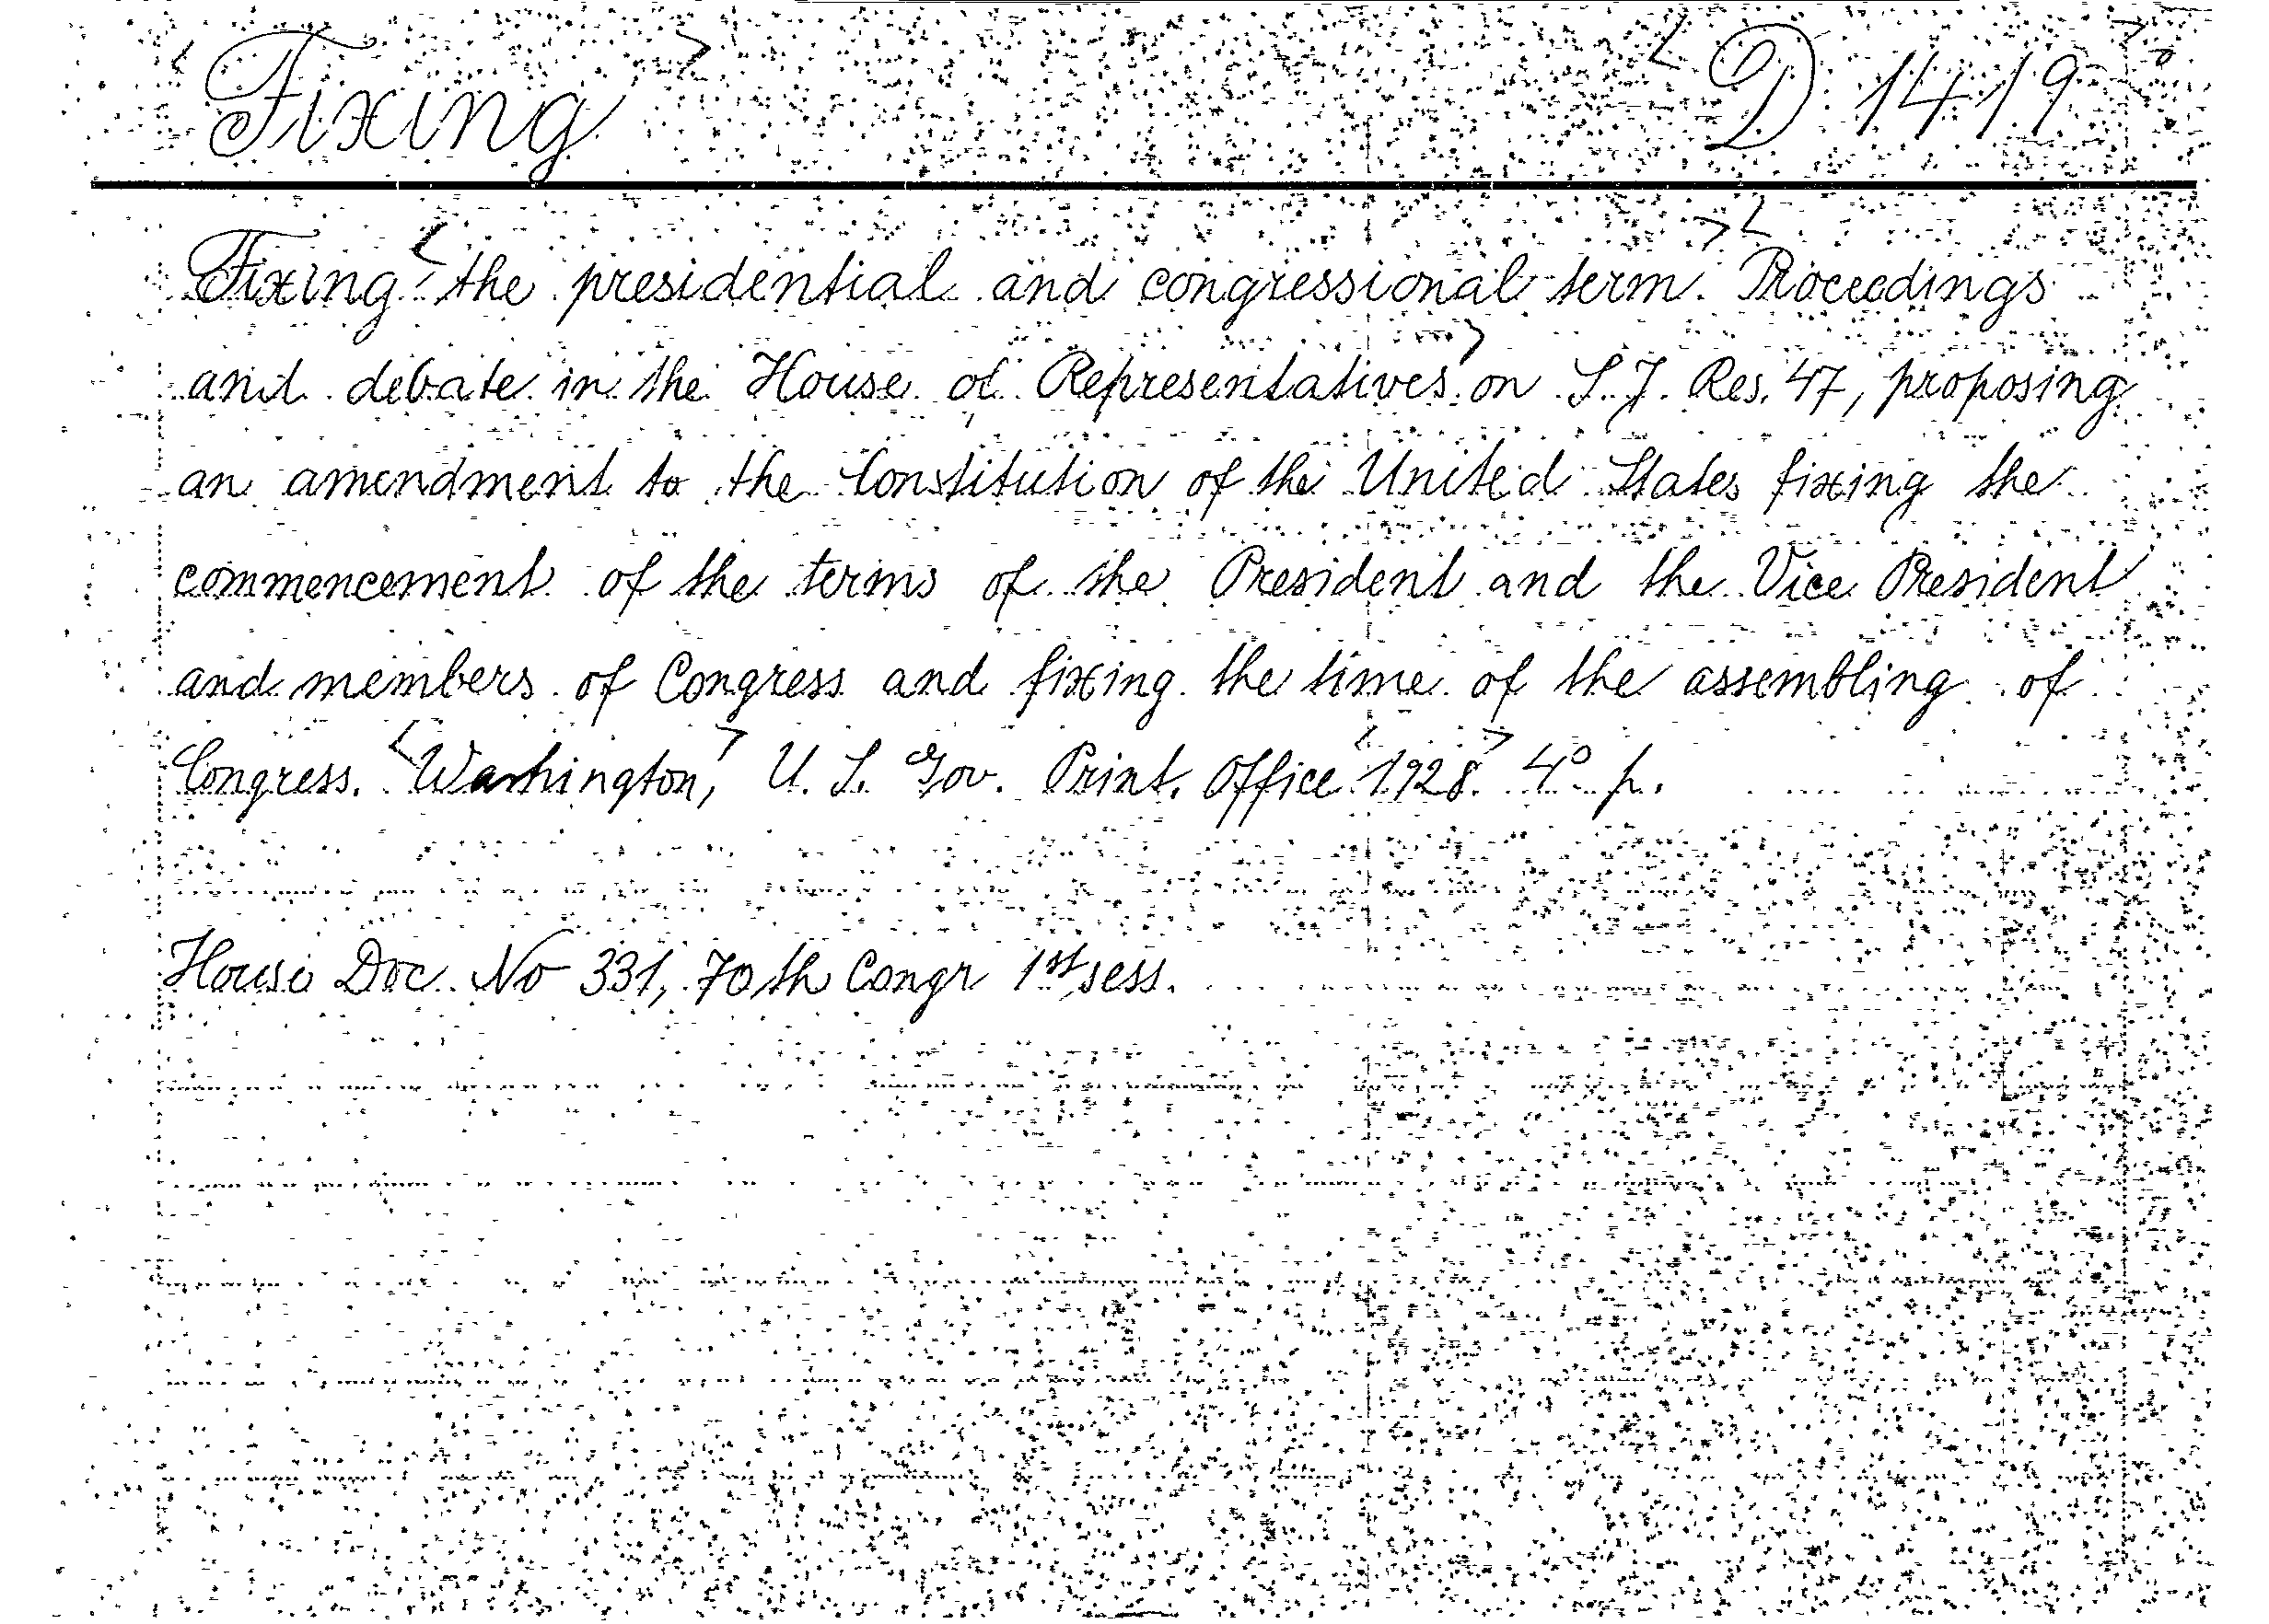 Fixing D 1419
Fixing the presidential and congressional term. Proceedings
and debate in the House of Representatives on S. J. Res. 47, proposing
an amendment to the Constitution of the United States fixing the
commencement of the terms of the President and the Vice President
and members of Congress and fixing the time of the assembling of
Congress. Washington, U. S. Gov. Print. Office 1928. 4° p.
House Doc. No 331, 70th Congr 1st sess.